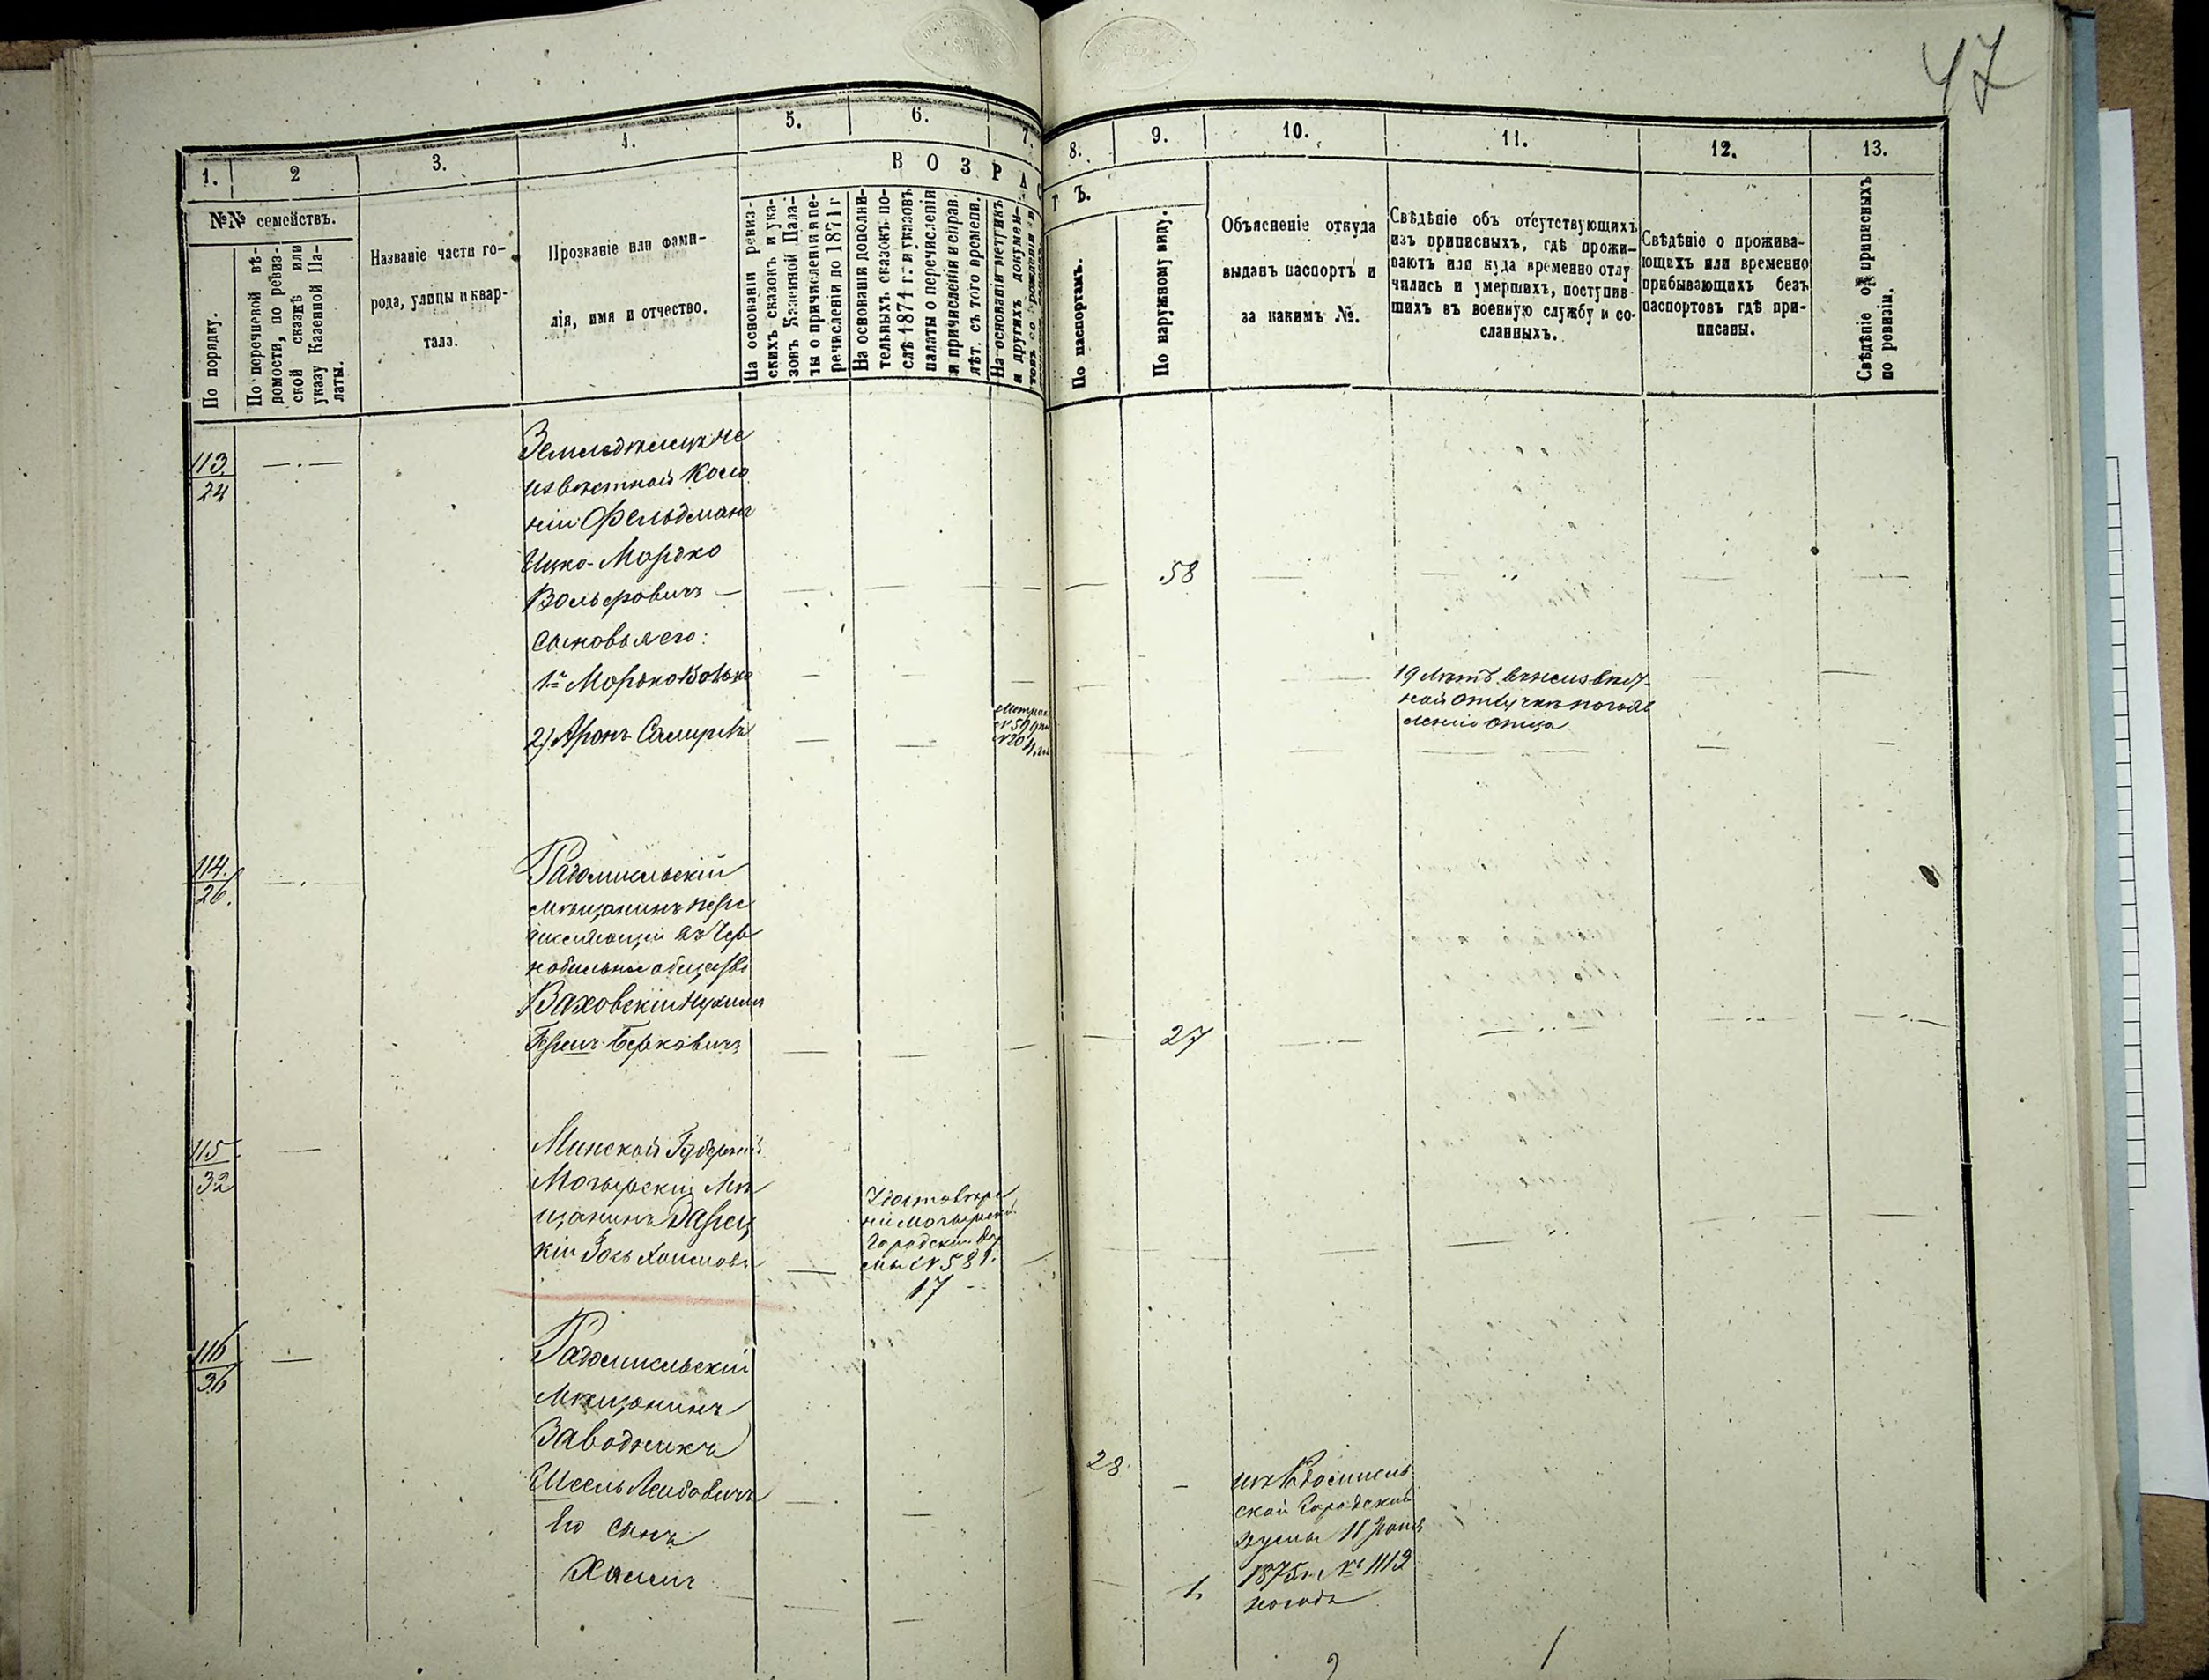 47
1.
2
3.
4.
5.
6.
7.
8.
9.
10.
11.
12.
13.
№№ семействъ.
По порядку.
По перечневой вѣ-
домости, по ревиз-
ской сказкѣ или
указу Казенной Па-
латы.
Названіе части го-
рода, улицы и квар-
тала.
Прозваніе или фами-
лія, имя и отчество.
ВОЗРАС
На основаніи ревиз-
скихъ сказокъ и ука-
зовъ Казенной Пала-
ты о причисленіи и пе-
речисленіи до 1871 г
На основаніи дополни-
тельныхъ сказокъ по-
слѣ 1871 г. и указовъ
палаты о перечисленіи
и причисленіи и справ.
лѣт. съ того времени.
На основаніи метрикъ
и другихъ докумен-
товъ со рожденія и
ТЪ.
По паспортамъ.
По наружному виду.
Объясненіе откуда
выданъ паспортъ и
за какимъ №.
Свѣдѣніе объ отсутствующихъ
изъ приписныхъ, гдѣ прожи-
ваютъ или куда временно отлу
чились и умершихъ, поступив-
шихъ въ военную службу и со-
сланныхъ.
Свѣдѣніе о прожива-
ющихъ или временно
прибывающихъ безъ
паспортовъ гдѣ при-
писаны.
Свѣдѣніе о приписныхъ
по ревизіи.
113
24
Земледѣлецъ не
извѣстной Коло
ніи Фельдманъ
Ицко-Мордко
Вольфовичъ —
58
сыновья его:
1й Мордко Волько
19 лѣтъ въ неизвѣст
ной отлучкѣ по заяв
ленію отца
2) Аронъ
№ 59
№ 20
114.
26.
Радомисльскій
мѣщанинъ пере
числяющій въ Чер
нобыльское общество
Ваховскій Нухимъ
Герш Берковичъ
27
115
32
Минской Губерніи
Мозырскій Мѣ
щанинъ Зарец
кій Зось Хаимовъ
Удостовѣре
ніе Мозырской
Городской Ду
мы № 581.
17
116
36
Радомисльскій
Мѣщанинъ
Заводникъ
Лейбовичъ
28
изъ Радомисль
ской Городской
Думы 11
1875 г. № 1113
на годъ
Его сынъ
Хаимъ
1